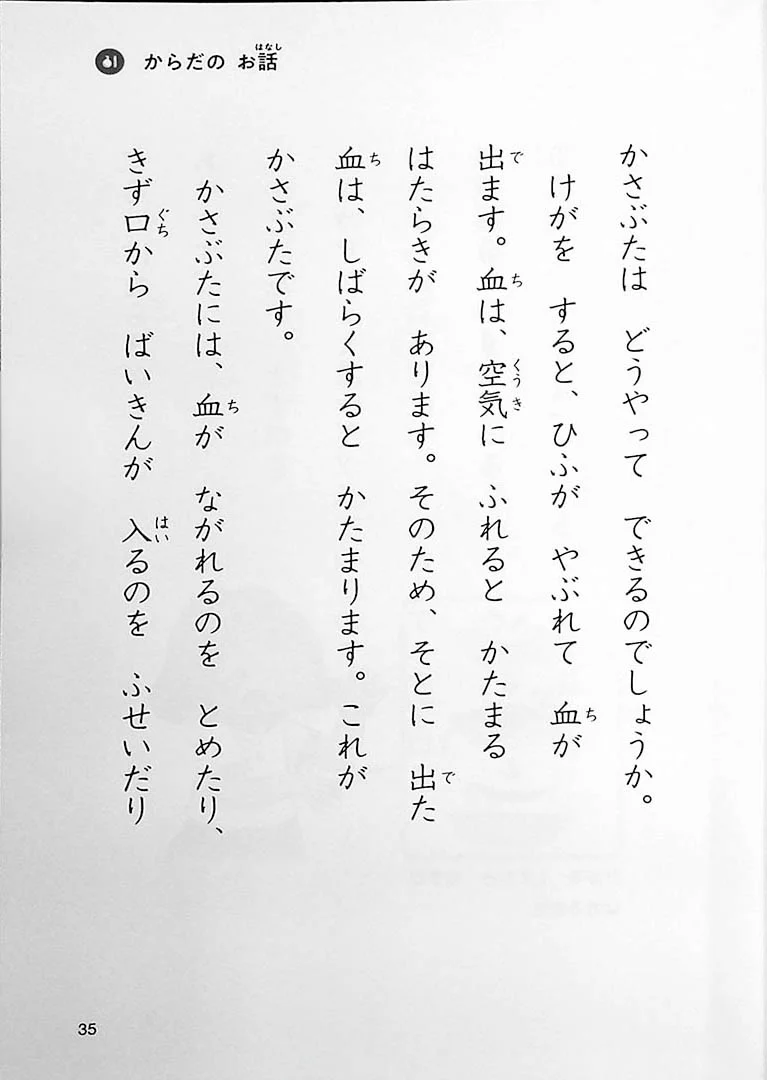 からだの お話
はなし
かさぶたは どうやって できるのでしょうか。
けがを すると、ひふが やぶれて 血が
ち
出ます。血は、空気に ふれると かたまる
で ち くうき
はたらきが あります。そのため、そとに 出た
で
血は、しばらくすると かたまります。これが
ち
かさぶたです。
かさぶたには、血が ながれるのを とめたり、
ち
きず口から ばいきんが 入るのを ふせいだり
ぐち はい
35